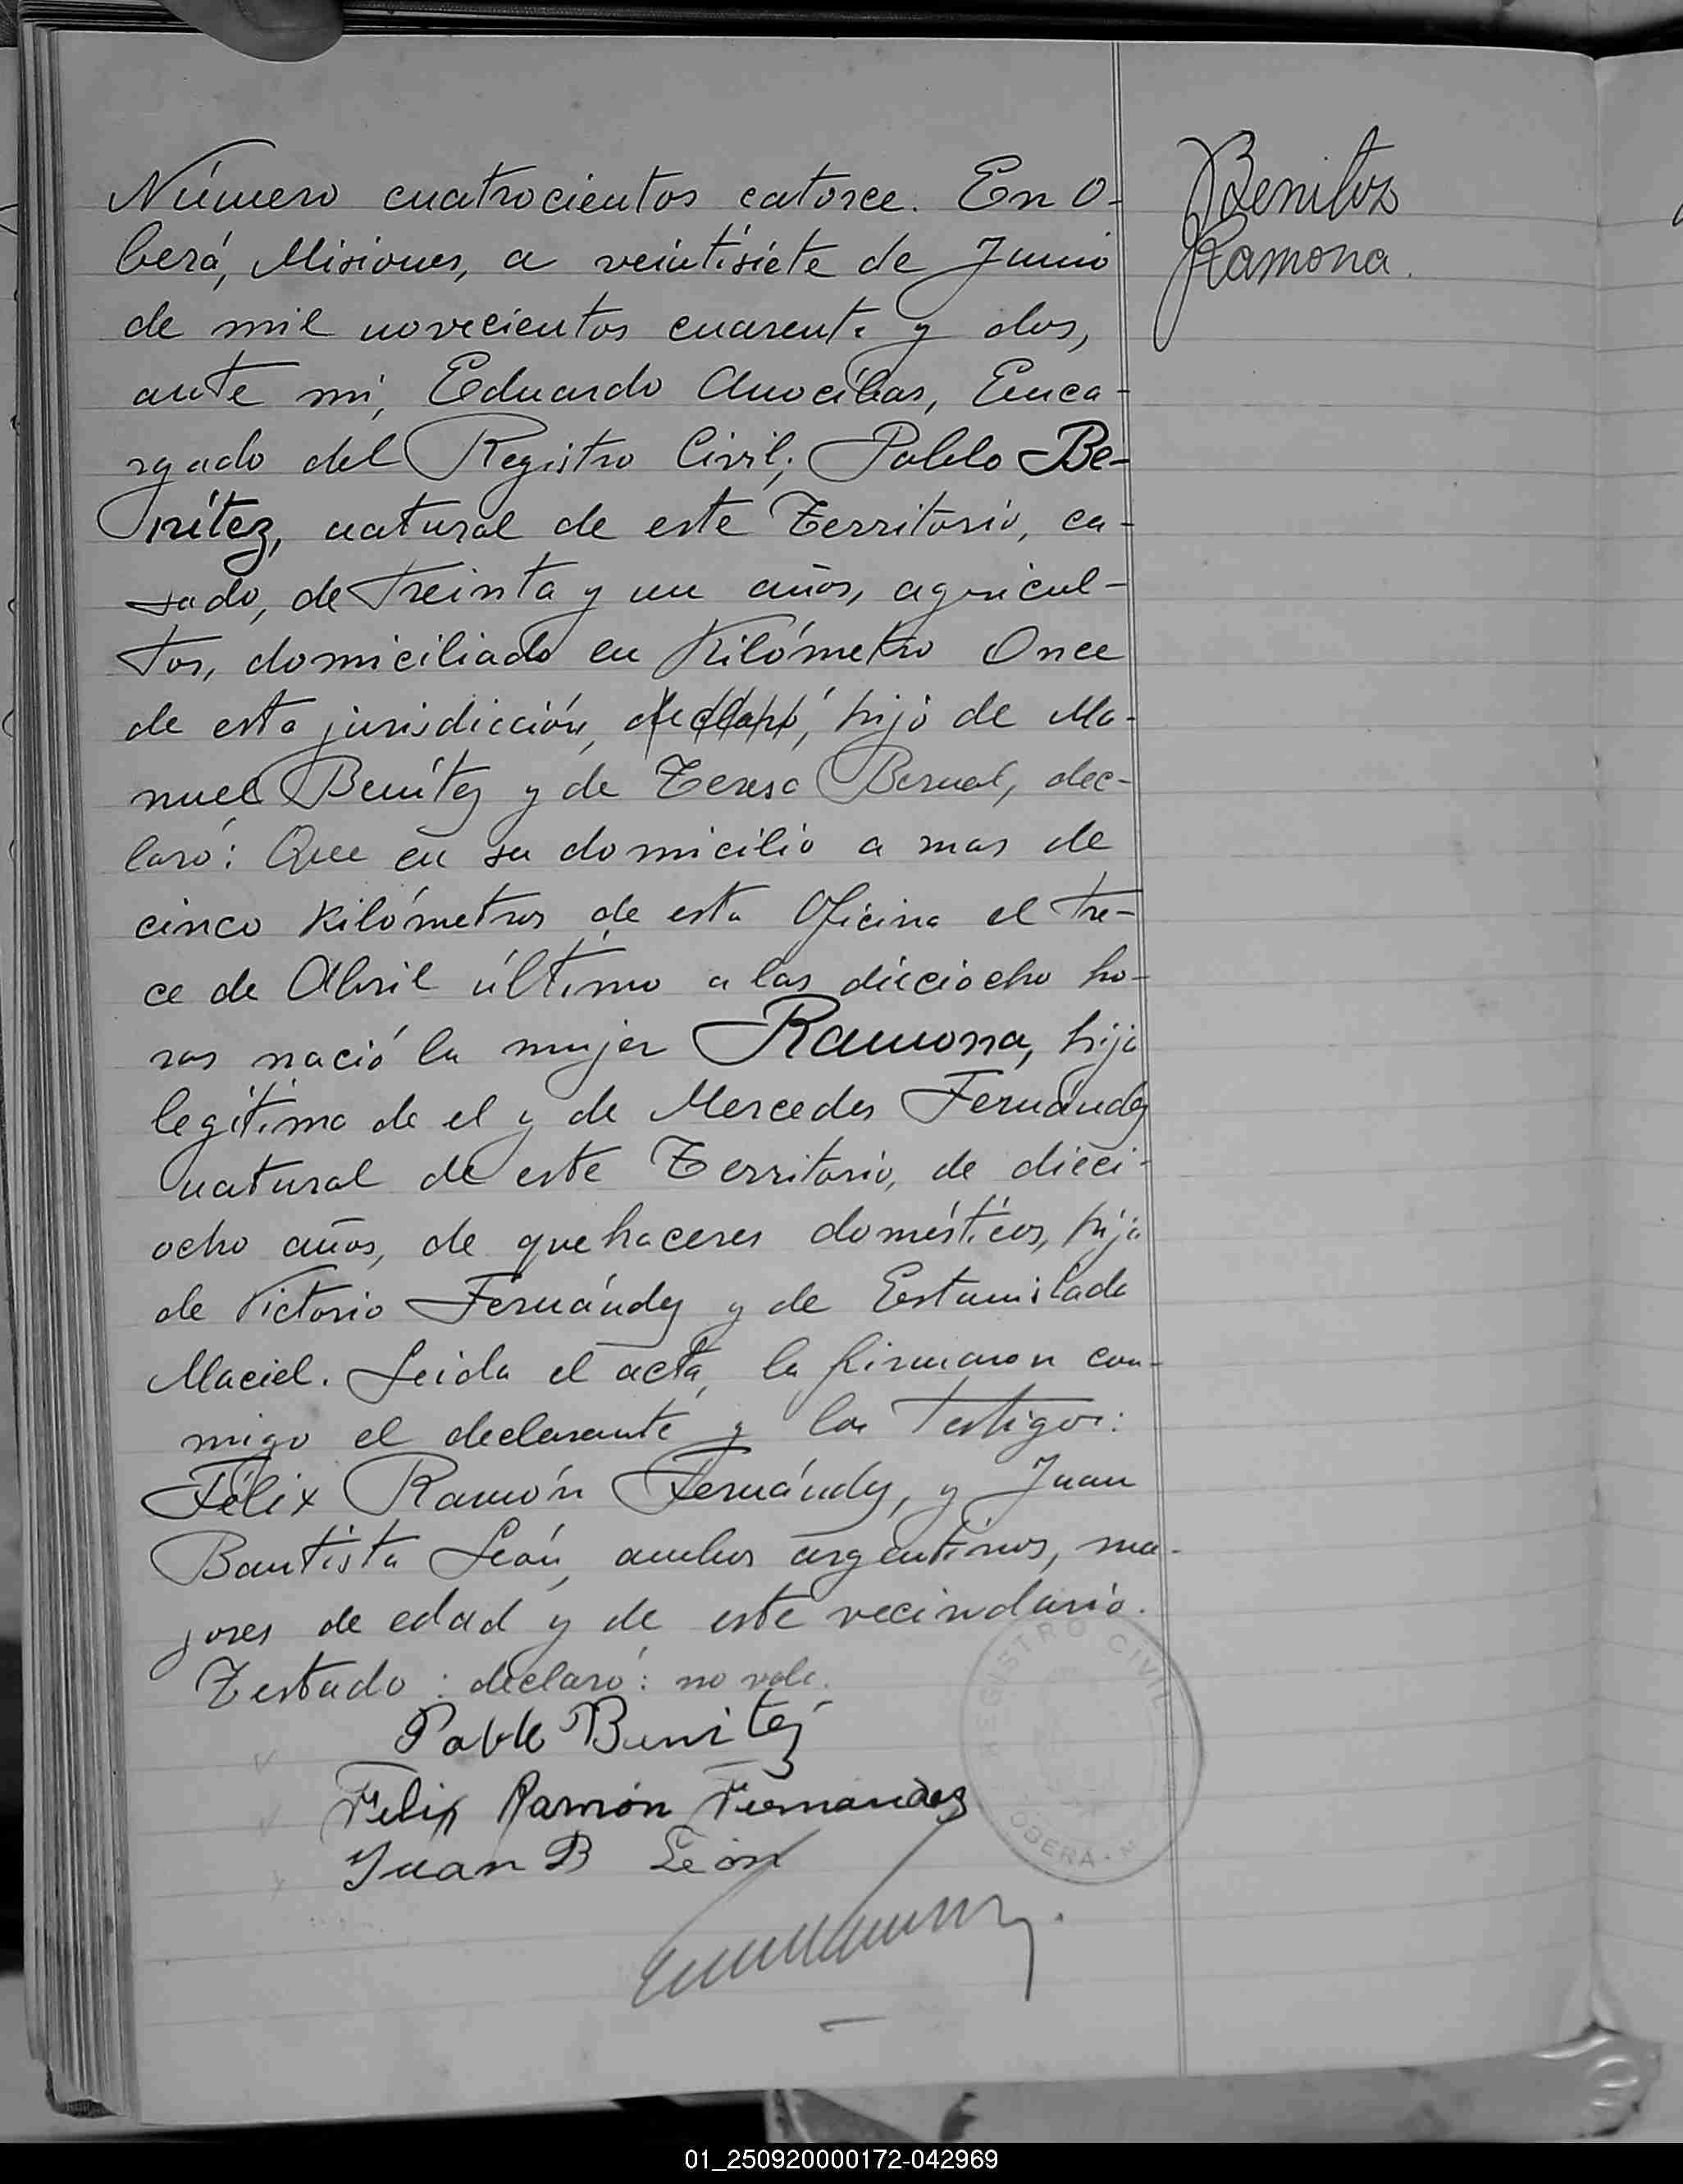 Número cuatrocientos catorce. En O-
berá, Misiones, a veintisiete de Junio
de mil novecientos cuarenta y dos,
ante mi, Eduardo Anocíbar, Enca-
rgado del Registro Civil; Pablo Be-
nítez, natural de este Territorio, ca-
sado, de treinta y un años, agricul-
tor, domiciliado en Kilómetro Once
de esta jurisdicción, declaró, hijo de Ma-
nuel Benítez y de Teresa Bernal, dec-
laró: Que en su domicilio a mas de
cinco Kilómetros de esta Oficina el tre-
ce de Abril último a las dieciocho ho-
ras nació la mujer Ramona, hija
legítima de el y de Mercedes Fernández
natural de este Territorio, de dieci-
ocho años, de quehaceres domésticos, hija
de Victorio Fernández y de Estanislada
Maciel. Leida el acta, la firmaron con-
migo el declarante y los testigos:
Félix Ramón Fernández, y Juan
Bautista León, ambos argentinos, ma-
yores de edad y de este vecindario.
Testado: declaró: no vale.
Pablo Benitez
Felix Ramón Fernandez
Juan B León
Benitez
Ramona.
REGISTRO CIVIL
OBERA - M
01_250920000172-042969